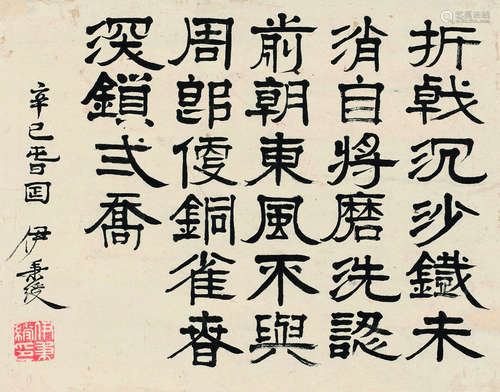 折戟沉沙鐵未
消自將磨洗認
前朝東風不與
周郎便銅雀春
深鎖弍喬
辛巳 伊秉綬
伊秉綬印